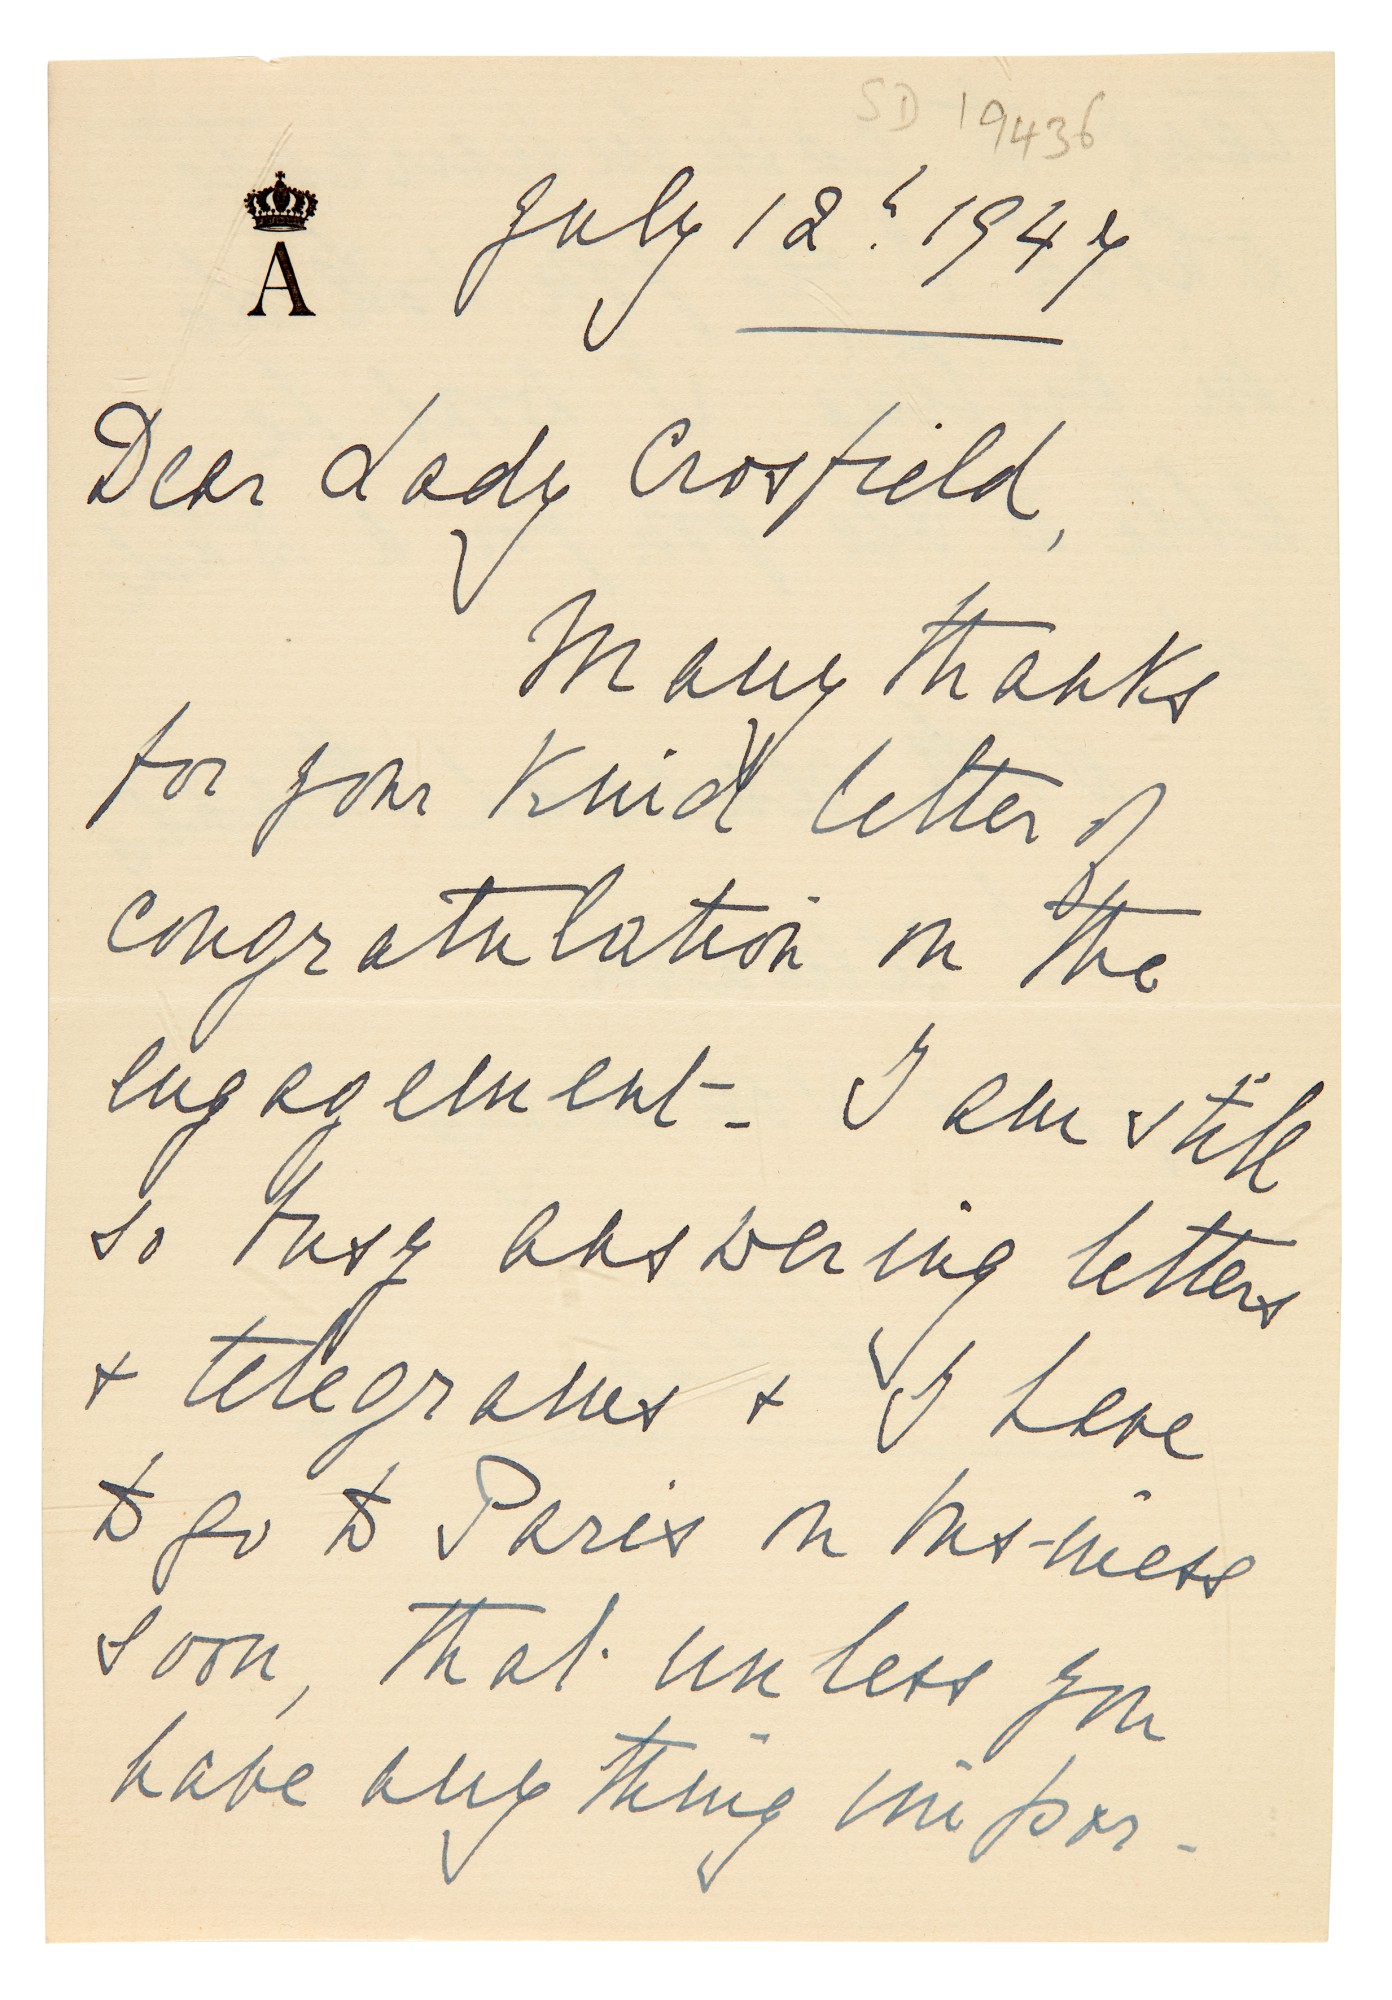 SD 19436
A
July 12th 1947
Dear Lady Crosfield,
Many thanks
for your kind letter of
congratulation on the
engagement - I am still
so busy answering letters
+ telegrams + I have
to go to Paris on bus-iness
soon, that unless you
have anything impor-